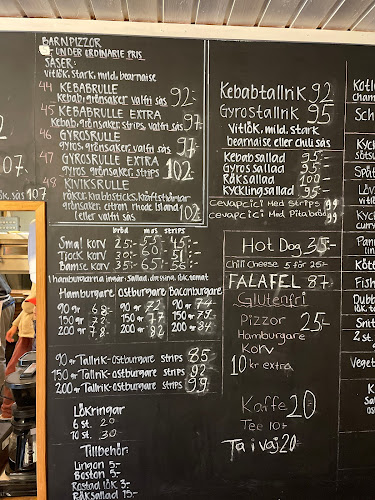 BARNPIZZOR
UNDER ORDINARIE PRIS
SÅSER:
vitlök, stark, mild, bearnaise
44 KEBABRULLE
kebab, grönsaker, valfri sås 92:-
45 KEBABRULLE EXTRA
kebab, grönsaker, strips, valfri sås 97:-
46 GYROSRULLE
gyros, grönsaker, valfri sås 97:-
47 GYROSRULLE EXTRA
gyros, grönsaker, strips 102:-
48 KIVIKSRULLE
räkor, krabbsticks, kräftstjärtar
grönsaker, citron, rhode Island 102:-
(eller valfri sås)
107.
lök, sås 107
bröd mos strips
Smal korv 25:- 55:- 45:-
Tjock korv 30:- 60:- 51:-
Bamse korv 35:- 65:- 56:-
I hamburgarna ingår: sallad, dressing, lök, tomat
Hamburgare Ostburgare Baconburgare
90 gr 68:- 90 gr 72 90 gr 74
150 gr 73:- 150 gr 77 150 gr 79
200 gr 78:- 200 gr 82 200 gr 84
90 gr Tallrik-ostburgare strips 85
150 gr Tallrik-ostburgare strips 92
200 gr Tallrik-ostburgare strips 99
Lökringar
6 st. 20
10 st. 30
Tillbehör:
Lingon 5:-
Boston 5:-
Rostad lök 3:-
Räksallad 15:-
Kebabtallrik 92
Gyrostallrik 95
Vitlök, mild, stark
bearnaise eller chili sås
Kebabsallad 95:-
Gyrossallad 95:-
Räksallad 102:-
Kycklingsallad 95:-
Cevapcici Med Strips 99
Cevapcici Med Pitabröd 99
Hot Dog 35:-
Chili Cheese 5 för 25:-
FALAFEL 87:
Glutenfri
Pizzor 25:-
Hamburgare
Korv
10 kr extra
Kaffe 20
Tee 10:-
Ta i vaj 20